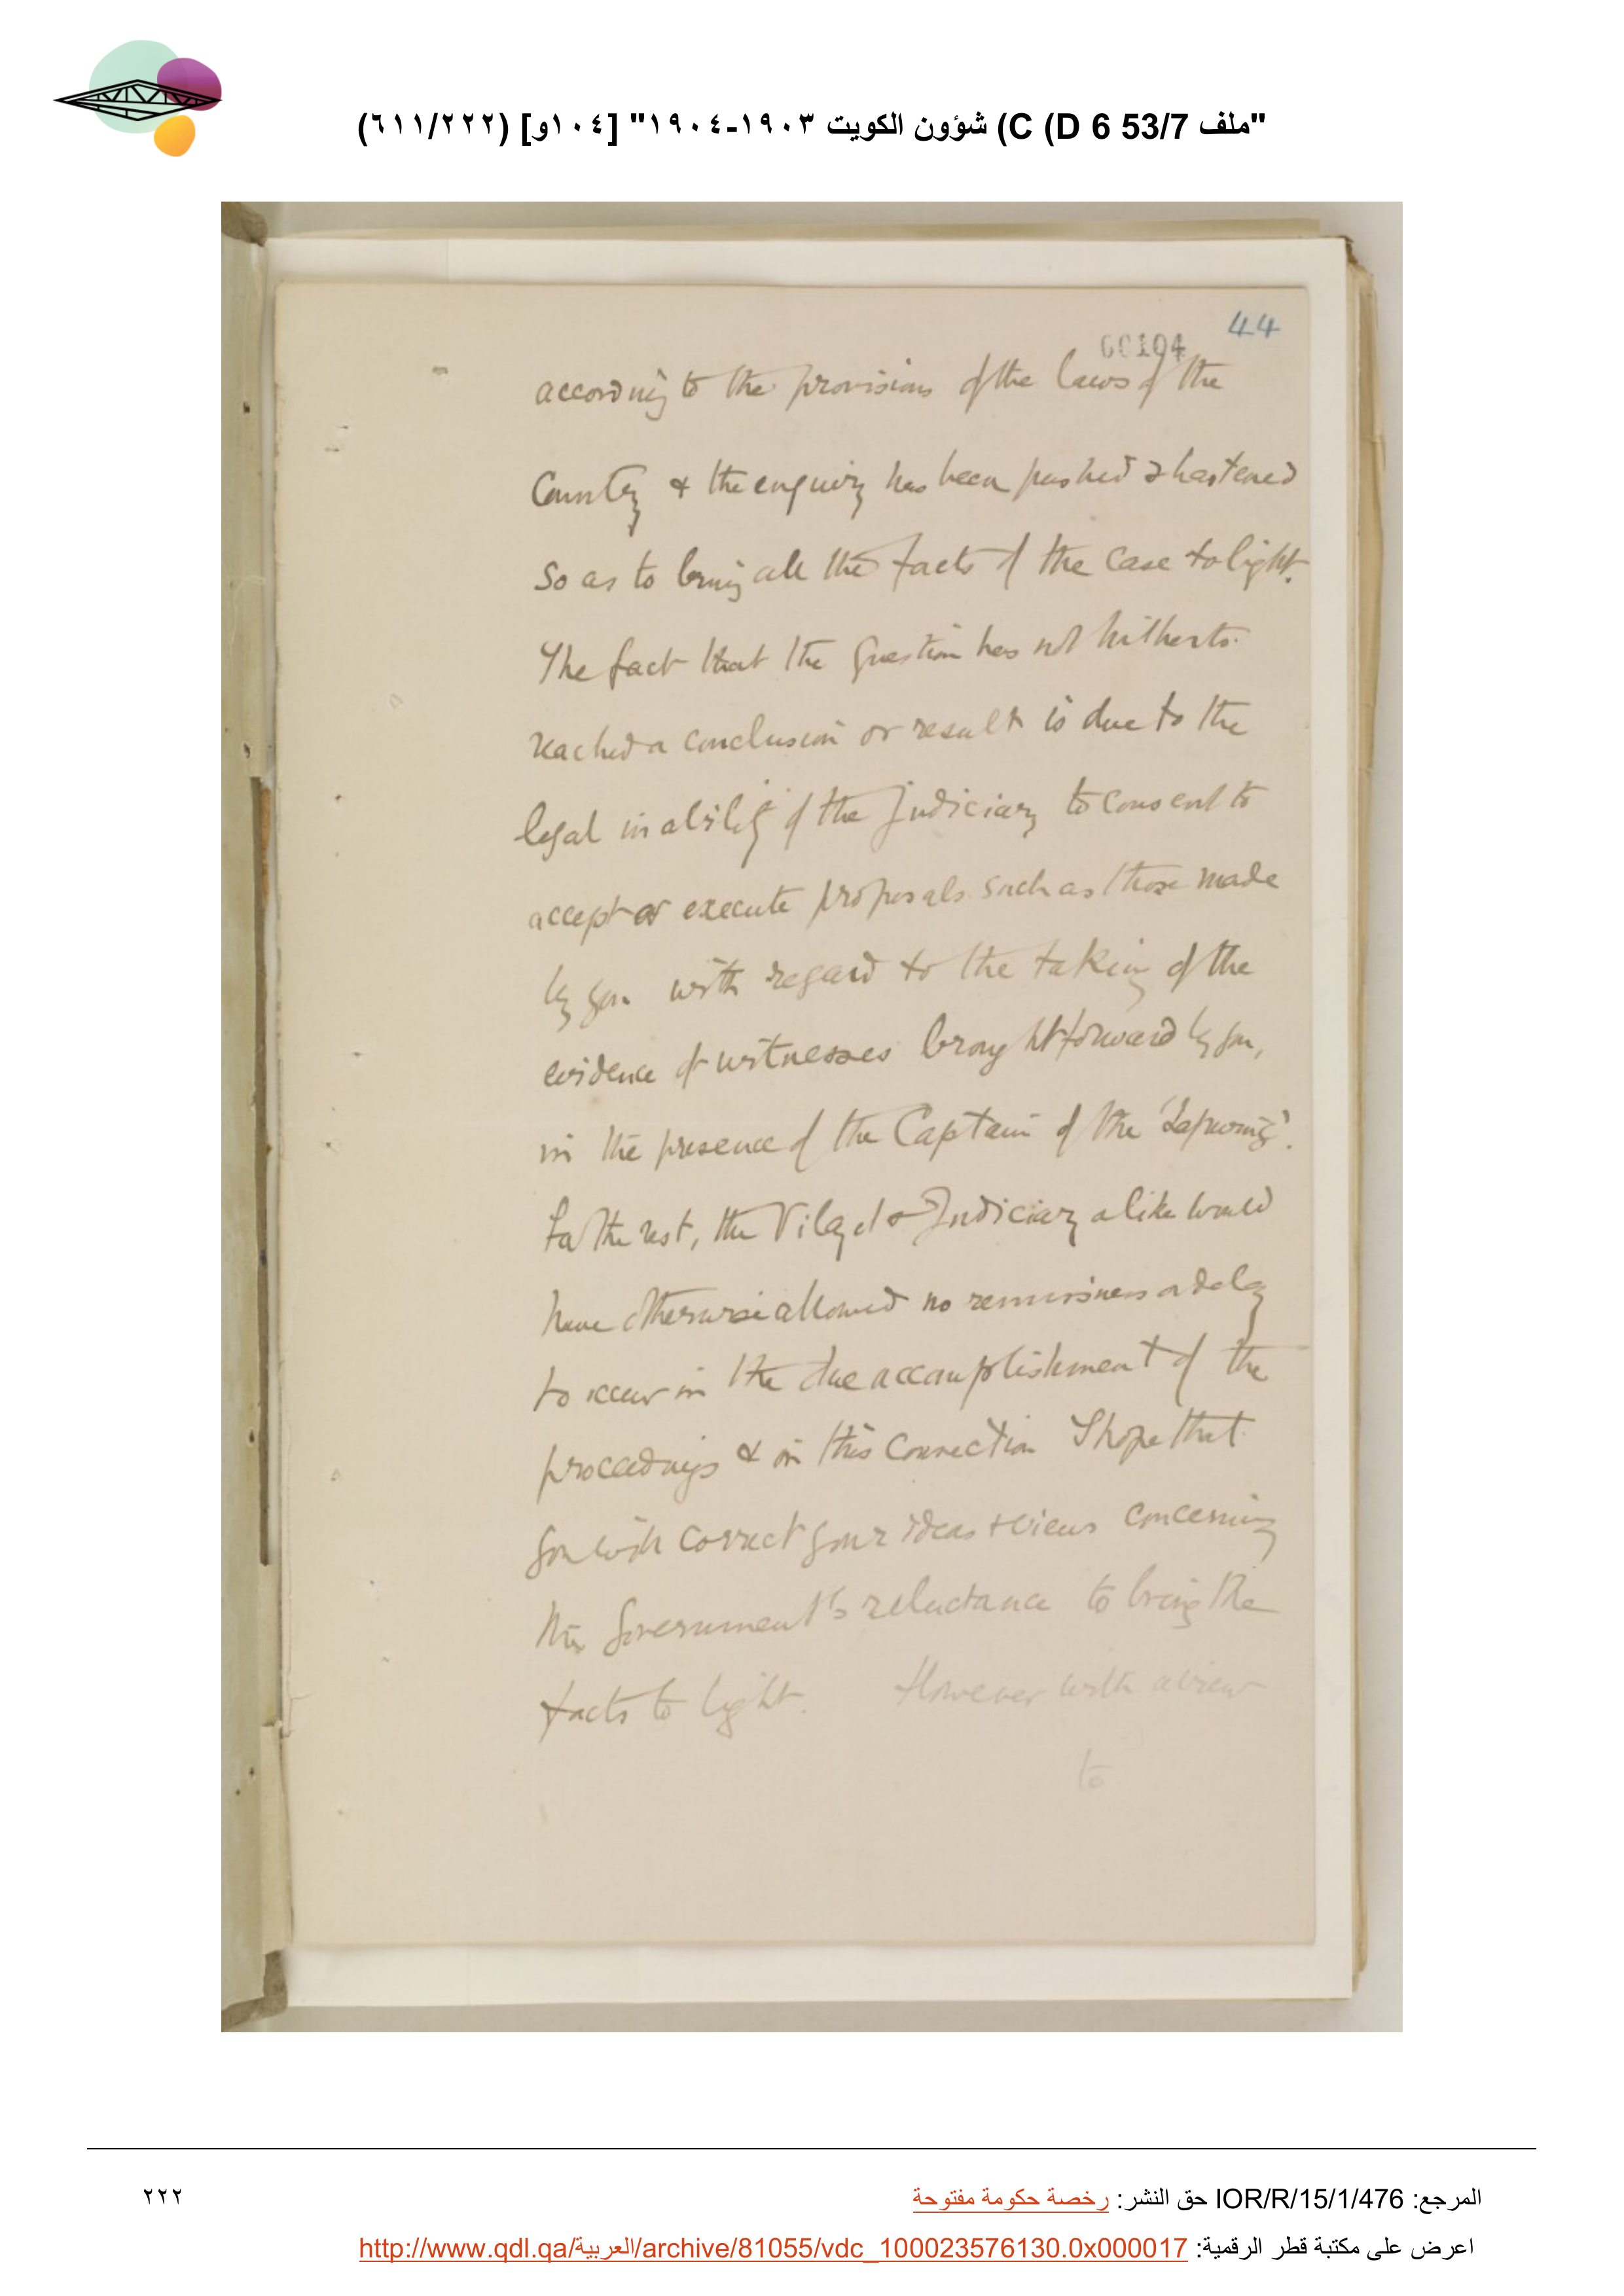 "ملف 53/7 D 6) C) شؤون الكويت ١٩٠٣-١٩٠٤" [١٠٤و] (٦١١/٢٢٢)
44
00104
according to the provisions of the laws of the
Country & the enquiry has been pushed & hastened
so as to bring all the facts of the case to light.
The fact that the question has not hitherto
reached a conclusion or result is due to the
legal inability of the Judiciary to consent to
accept or execute proposals such as those made
by you with regard to the taking of the
evidence of witnesses brought forward by you,
in the presence of the Captain of the 'Lapwing'.
For the rest, the Vilayet & Judiciary alike would
have otherwise allowed no remissness or delay
to occur in the due accomplishment of the
proceedings & in this connection I hope that
you will correct your ideas & views concerning
the Government's reluctance to bring the
facts to light. However with a view
to
المرجع: IOR/R/15/1/476 حق النشر: رخصة حكومة مفتوحة
٢٢٢
اعرض على مكتبة قطر الرقمية: http://www.qdl.qa/العربية/archive/81055/vdc_100023576130.0x000017